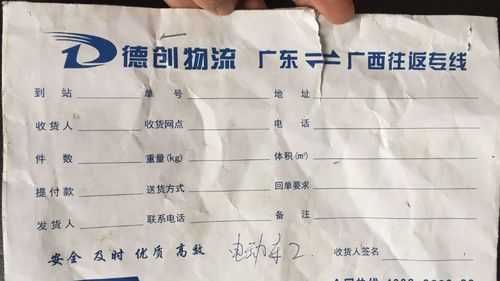 德创物流 广东⇌广西往返专线
到站 单号 地址
收货人 收货网点 电话
件数 重量(kg) 体积(m³)
提付款 送货方式 回单要求
发货人 联系电话 备注
安全 及时 优质 高效 电动车2 收货人签名